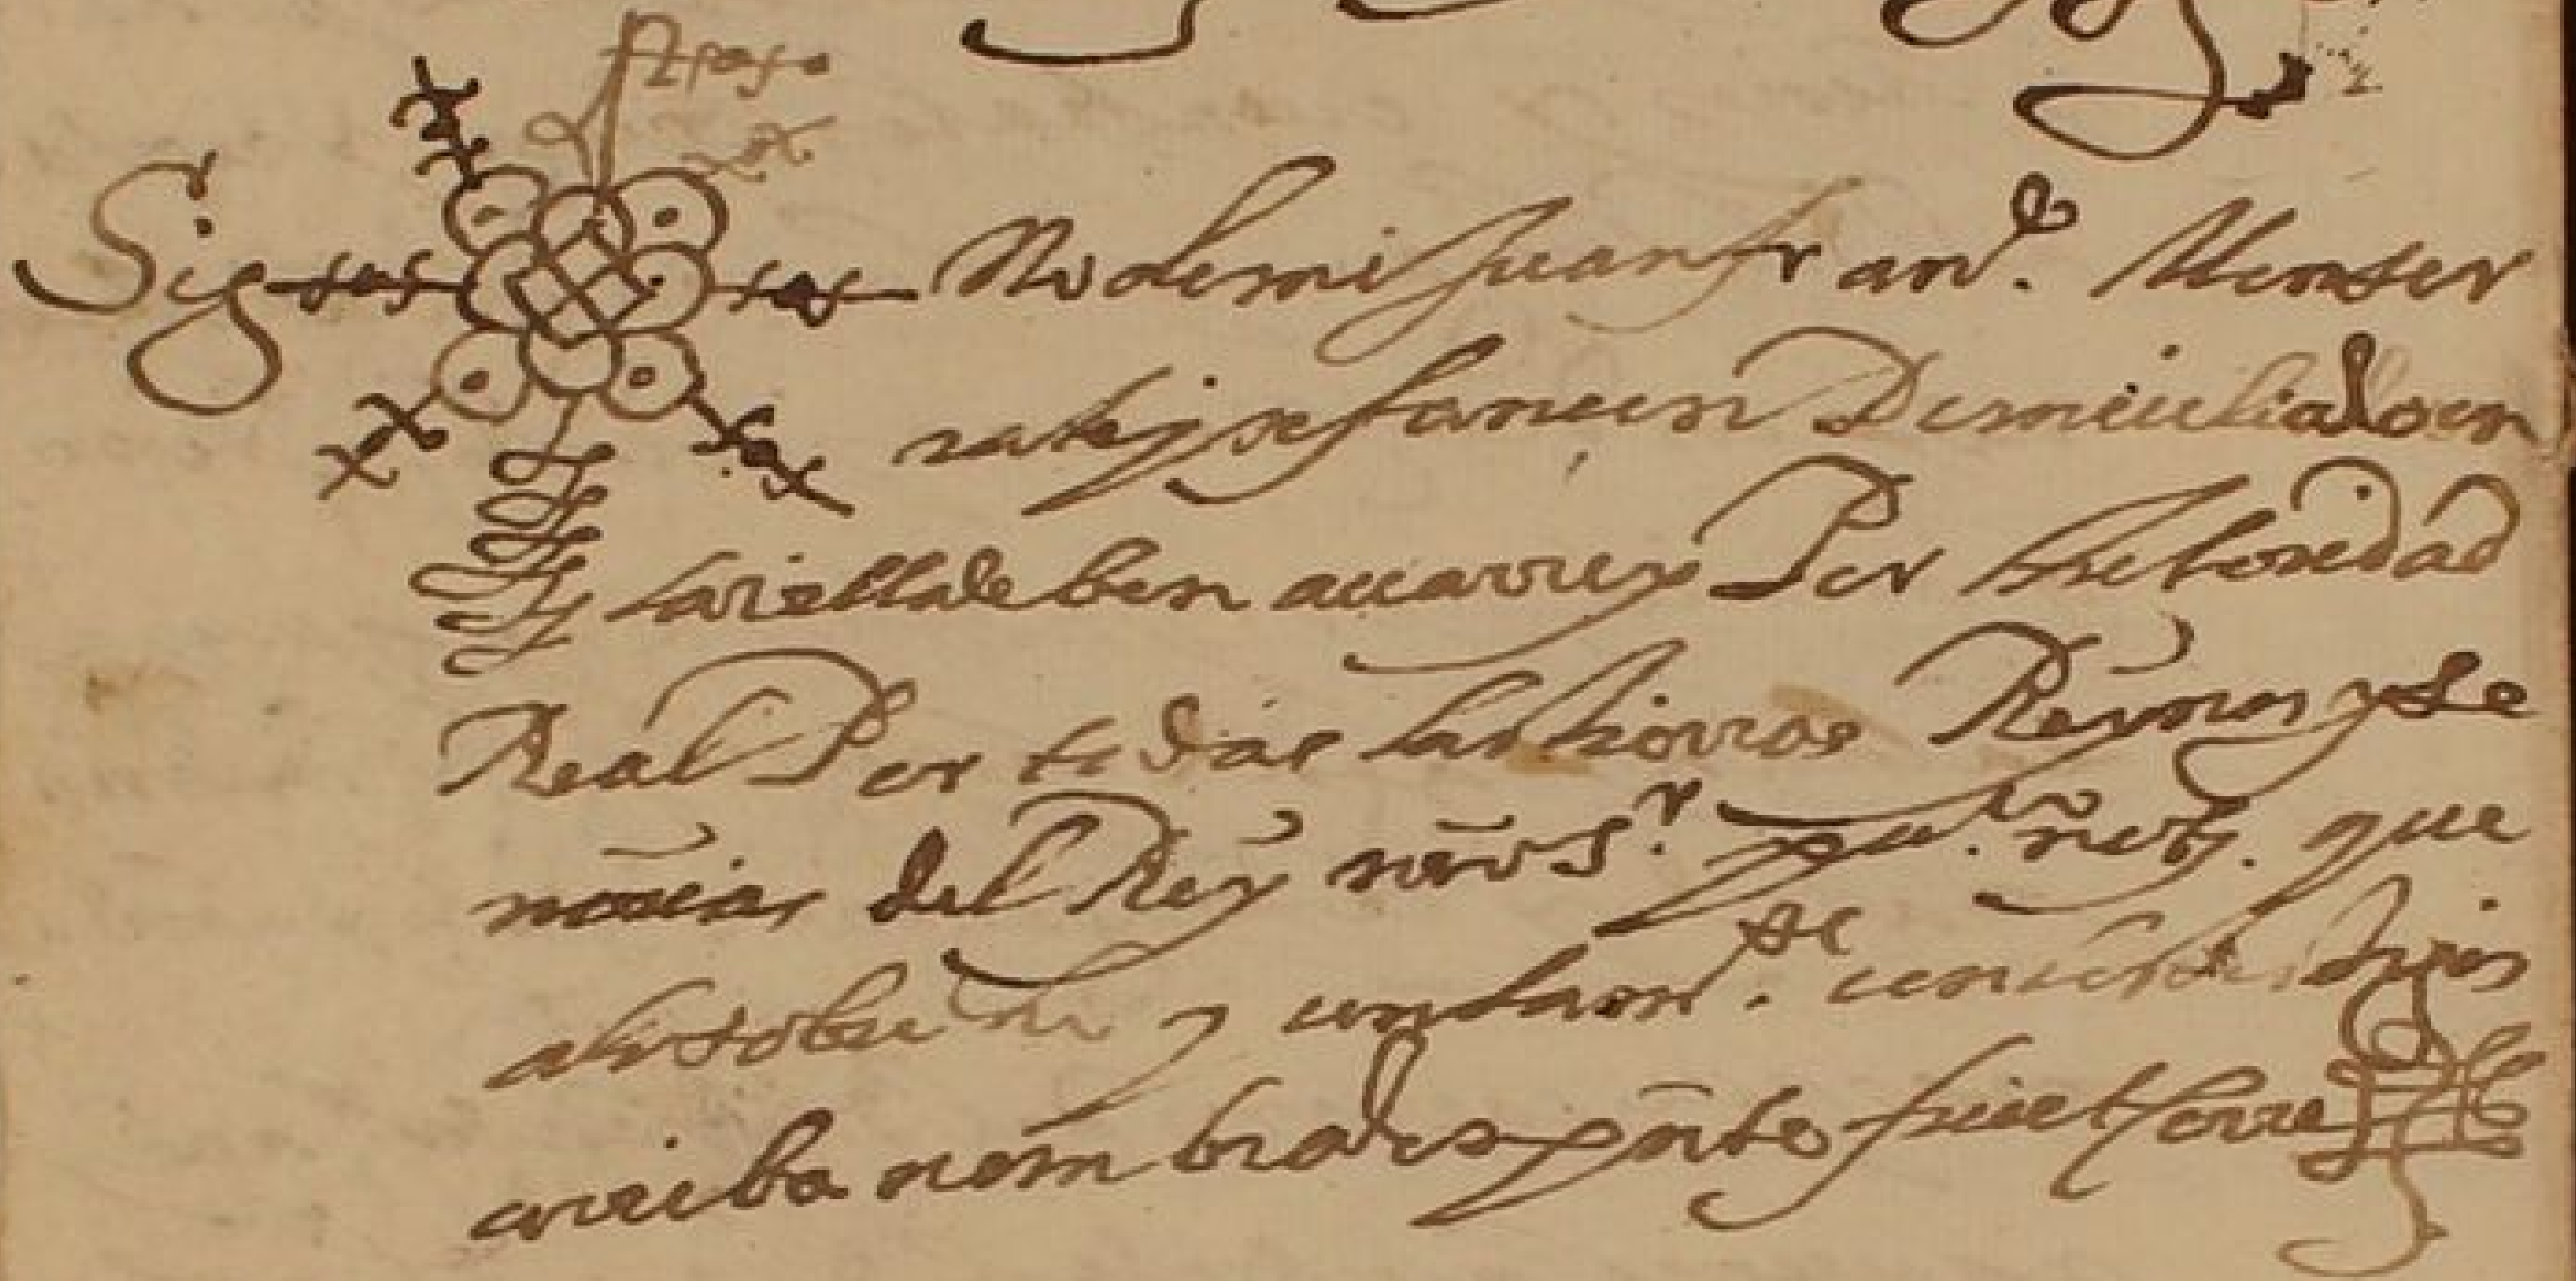 Sig no de mi Juan fran.co Monser
rate ynfançon Domiciliado en
la villa de benauarrey Por Autoridad
Real Por todas las tierras Reynos y se
norias del Rey nro S.r pu.co not. que
al sobredho y juntam.te con los testigos
arriba nombrados pnte fui et cerre